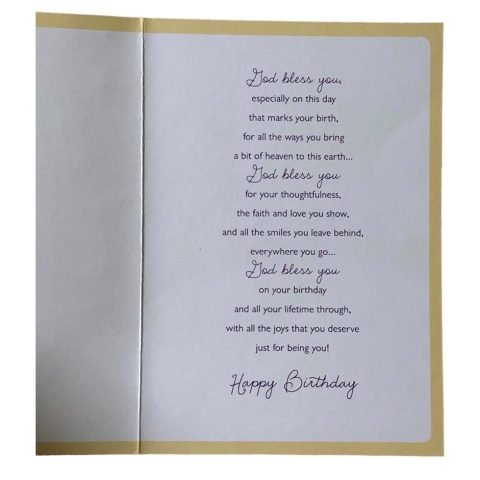 God bless you,
especially on this day
that marks your birth,
for all the ways you bring
a bit of heaven to this earth...
God bless you
for your thoughtfulness,
the faith and love you show,
and all the smiles you leave behind,
everywhere you go...
God bless you
on your birthday
and all your lifetime through,
with all the joys that you deserve
just for being you!
Happy Birthday